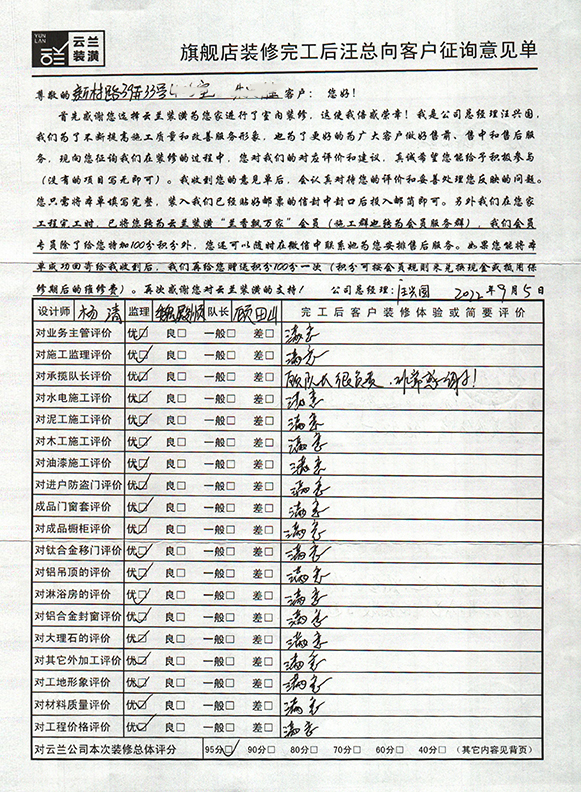 YUN LAN
云兰装潢
旗舰店装修完工后汪总向客户征询意见单
尊敬的 新村路 弄33号 室 客户： 您好！
首先感谢您选择云兰装潢为您家进行了室内装修，这使我倍感荣幸！我是公司总经理汪兴国，
我们为了不断提高施工质量和改善服务形象，也为了更好的为广大客户做好售前、售中和售后服
务，现向您征询我们在装修的过程中，您对我们的对应评价和建议，真诚希望您能给予积极参与
（没有的项目写无即可）。我收到您的意见单后，会认真对待您的评价和妥善处理您反映的问题。
您只需将本单填写完整，装入我们已经贴好邮票的信封中封口后投入邮筒即可。另外我们在您家
工程完工时，已将您转为云兰装潢“兰香飘万家”会员（施工群也转为会员服务群），我们会员
专员除了给您特加100分积分外，您还可以随时在微信中联系她为您安排售后服务。如果您能将本
单成功回寄给我收到后，我们再给您赠送积分100分一次（积分可按会员规则来兑换现金或抵用保
修期后的维修费）。再次感谢您对云兰装潢的支持！ 公司总经理：汪兴国 2022年9月5日
设计师 杨涛 监理 队长 顾田斗 完工后客户装修体验或简要评价
对业务主管评价 优☑ 良□ 一般□ 差□ 满意
对施工监理评价 优☑ 良□ 一般□ 差□ 满意
对承揽队长评价 优☑ 良□ 一般□ 差□ 顾队长很负责，非常感谢！
对水电施工评价 优☑ 良□ 一般□ 差□ 满意
对泥工施工评价 优☑ 良□ 一般□ 差□ 满意
对木工施工评价 优☑ 良□ 一般□ 差□ 满意
对油漆施工评价 优☑ 良□ 一般□ 差□ 满意
对进户防盗门评价 优☑ 良□ 一般□ 差□ 满意
成品门窗套评价 优☑ 良□ 一般□ 差□ 满意
对成品橱柜评价 优☑ 良□ 一般□ 差□ 满意
对钛合金移门评价 优☑ 良□ 一般□ 差□ 满意
对铝吊顶的评价 优☑ 良□ 一般□ 差□ 满意
对淋浴房的评价 优☑ 良□ 一般□ 差□ 满意
对铝合金封窗评价 优☑ 良□ 一般□ 差□ 满意
对大理石的评价 优☑ 良□ 一般□ 差□ 满意
对其它外加工评价 优☑ 良□ 一般□ 差□ 满意
对工地形象评价 优☑ 良□ 一般□ 差□ 满意
对材料质量评价 优☑ 良□ 一般□ 差□ 满意
对工程价格评价 优☑ 良□ 一般□ 差□ 满意
对云兰公司本次装修总体评分 95分☑ 90分□ 80分□ 70分□ 60分□ 40分□ （其它内容见背页）